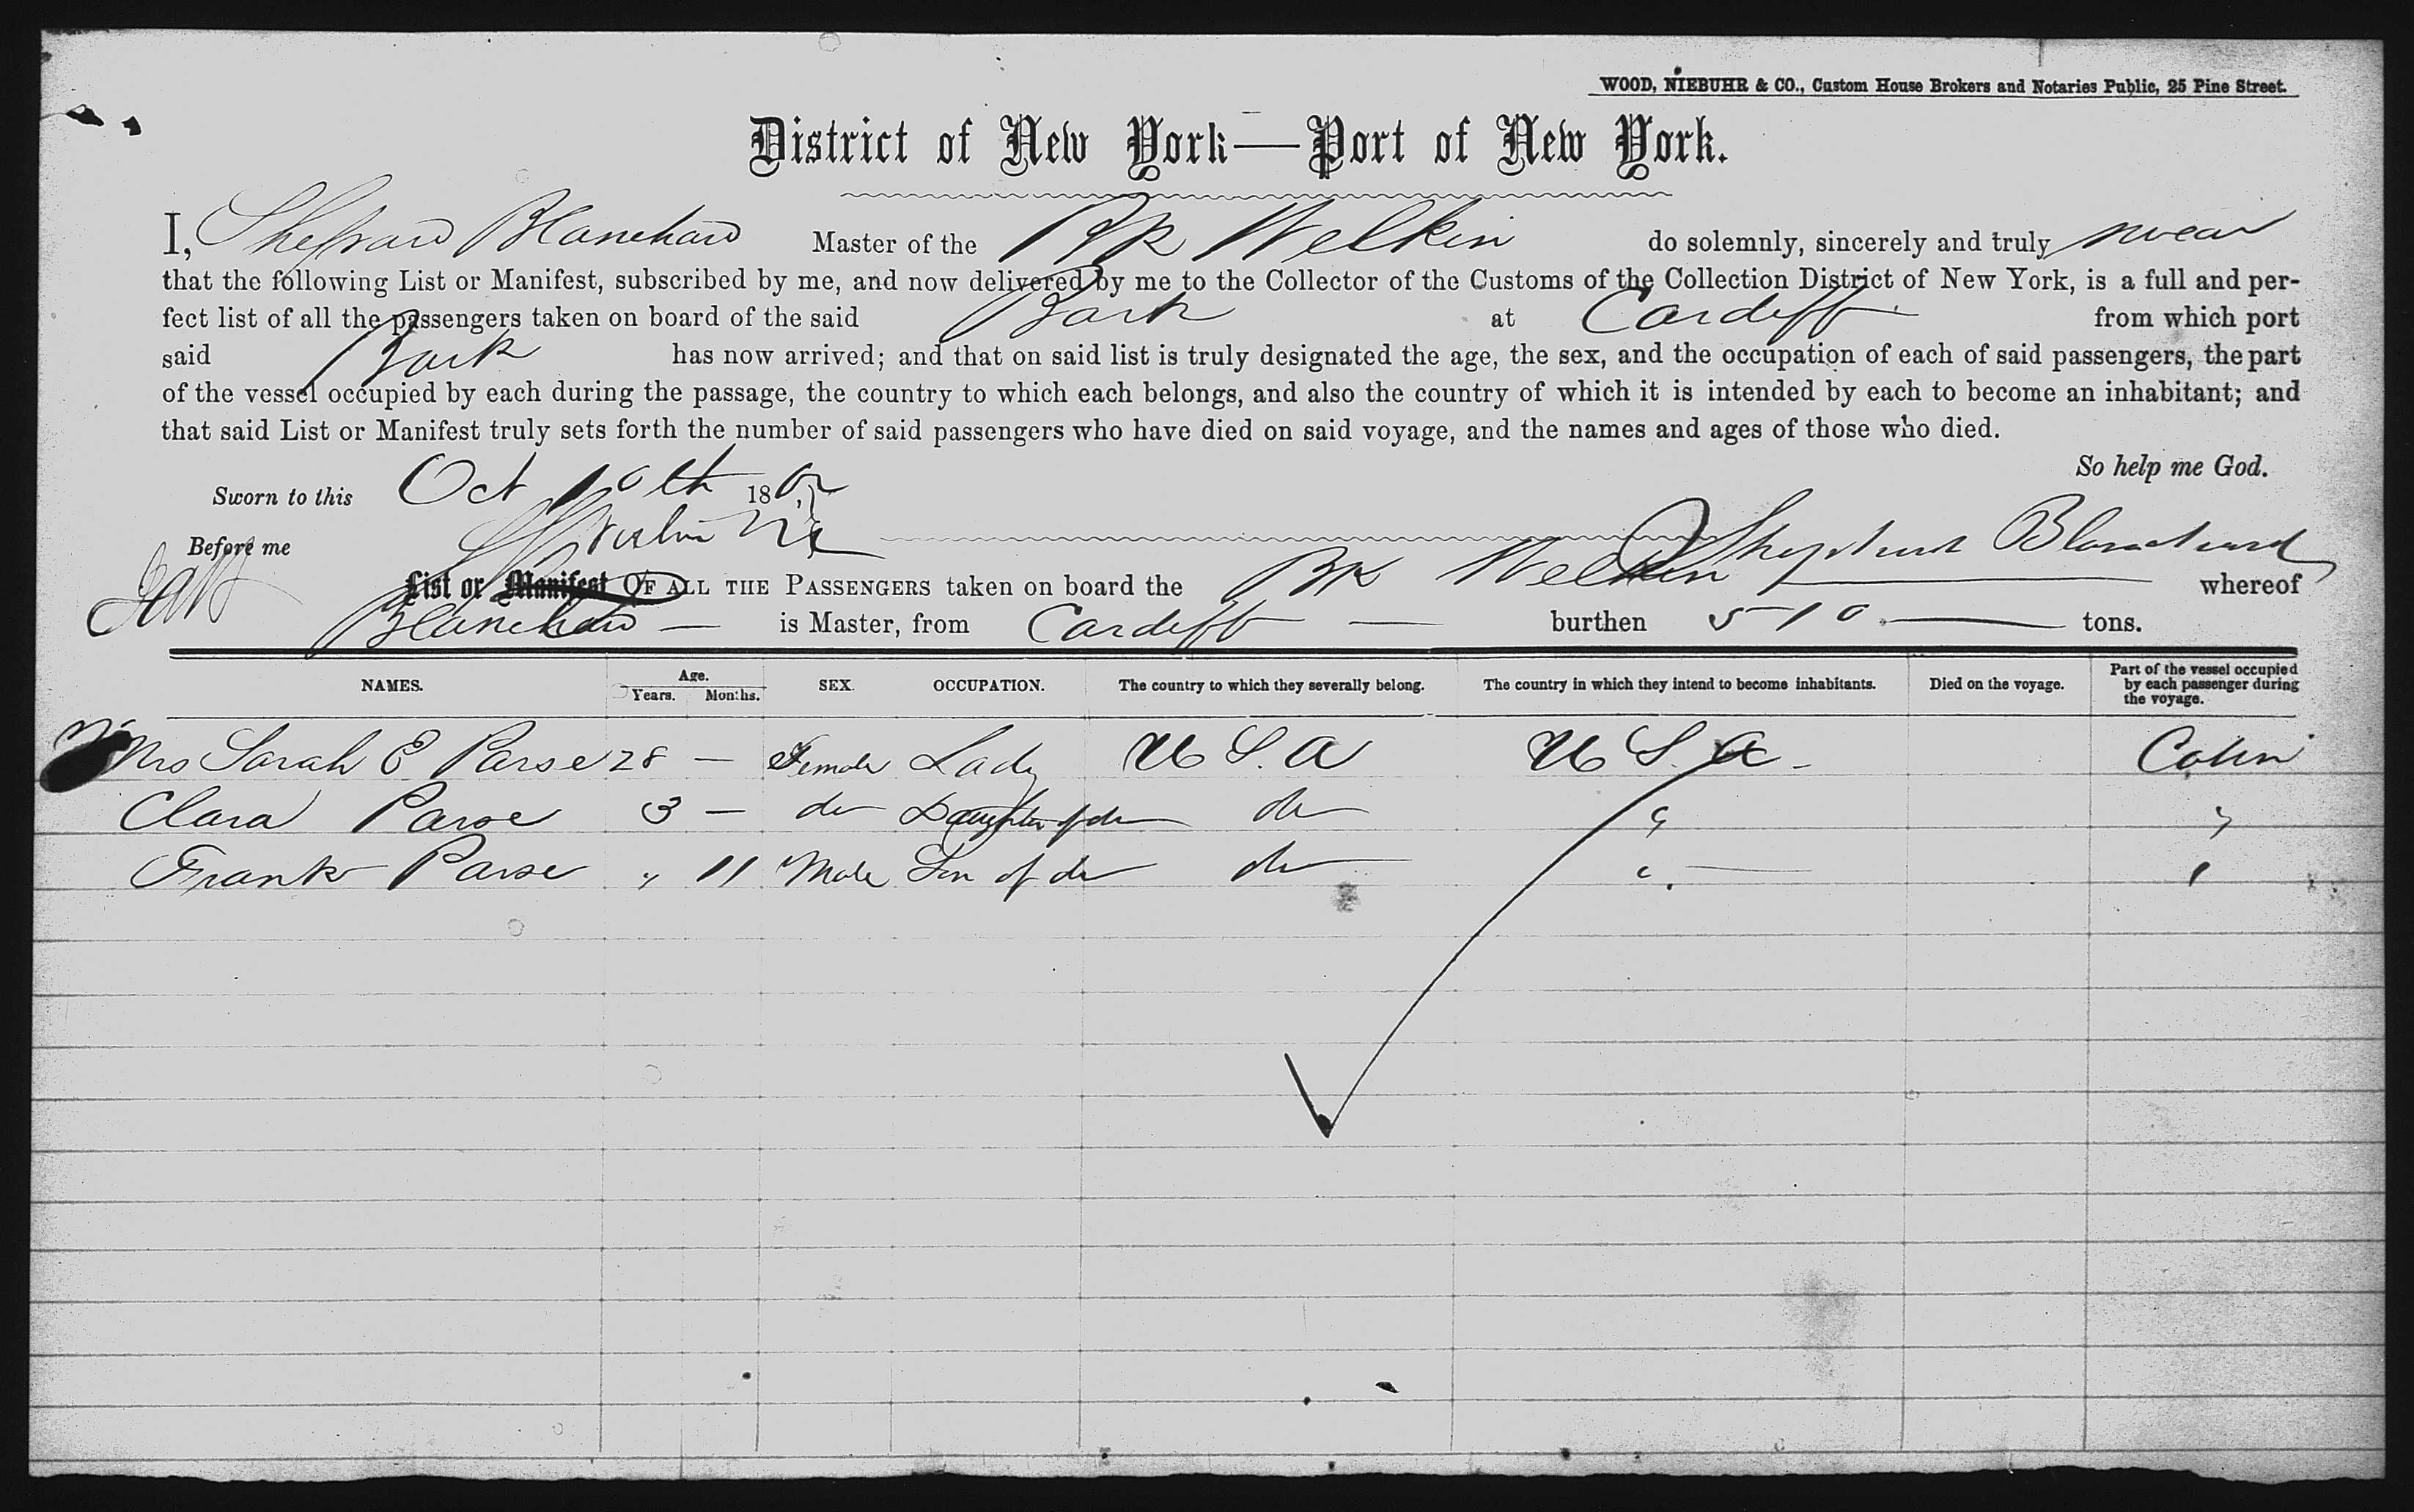 WOOD, NIEBUHR & CO., Custom House Brokers and Notaries Public, 25 Pine Street.
District of New York—Port of New York.
I, Sheppard Blanchard Master of the Bk Welkin do solemnly, sincerely and truly swear
that the following List or Manifest, subscribed by me, and now delivered by me to the Collector of the Customs of the Collection District of New York, is a full and per-
fect list of all the passengers taken on board of the said Bark at Cardiff from which port
said Bark has now arrived; and that on said list is truly designated the age, the sex, and the occupation of each of said passengers, the part
of the vessel occupied by each during the passage, the country to which each belongs, and also the country of which it is intended by each to become an inhabitant; and
that said List or Manifest truly sets forth the number of said passengers who have died on said voyage, and the names and ages of those who died.
So help me God.
Sworn to this Oct 10th 186
Before me Blanchard
List or Manifest OF ALL THE PASSENGERS taken on board the Bk Welkin whereof
Blanchard — is Master, from Cardiff — burthen 510 — tons.
NAMES. Age. Years. Months. SEX. OCCUPATION. The country to which they severally belong. The country in which they intend to become inhabitants. Died on the voyage. Part of the vessel occupied by each passenger during the voyage.
Mrs Sarah E Parse 28 — Female Lady U S. A U S. A - Cabin
Clara Parse 3 — do Daughter of do do " "
Frank Parse " 11 Male Son of do do " "